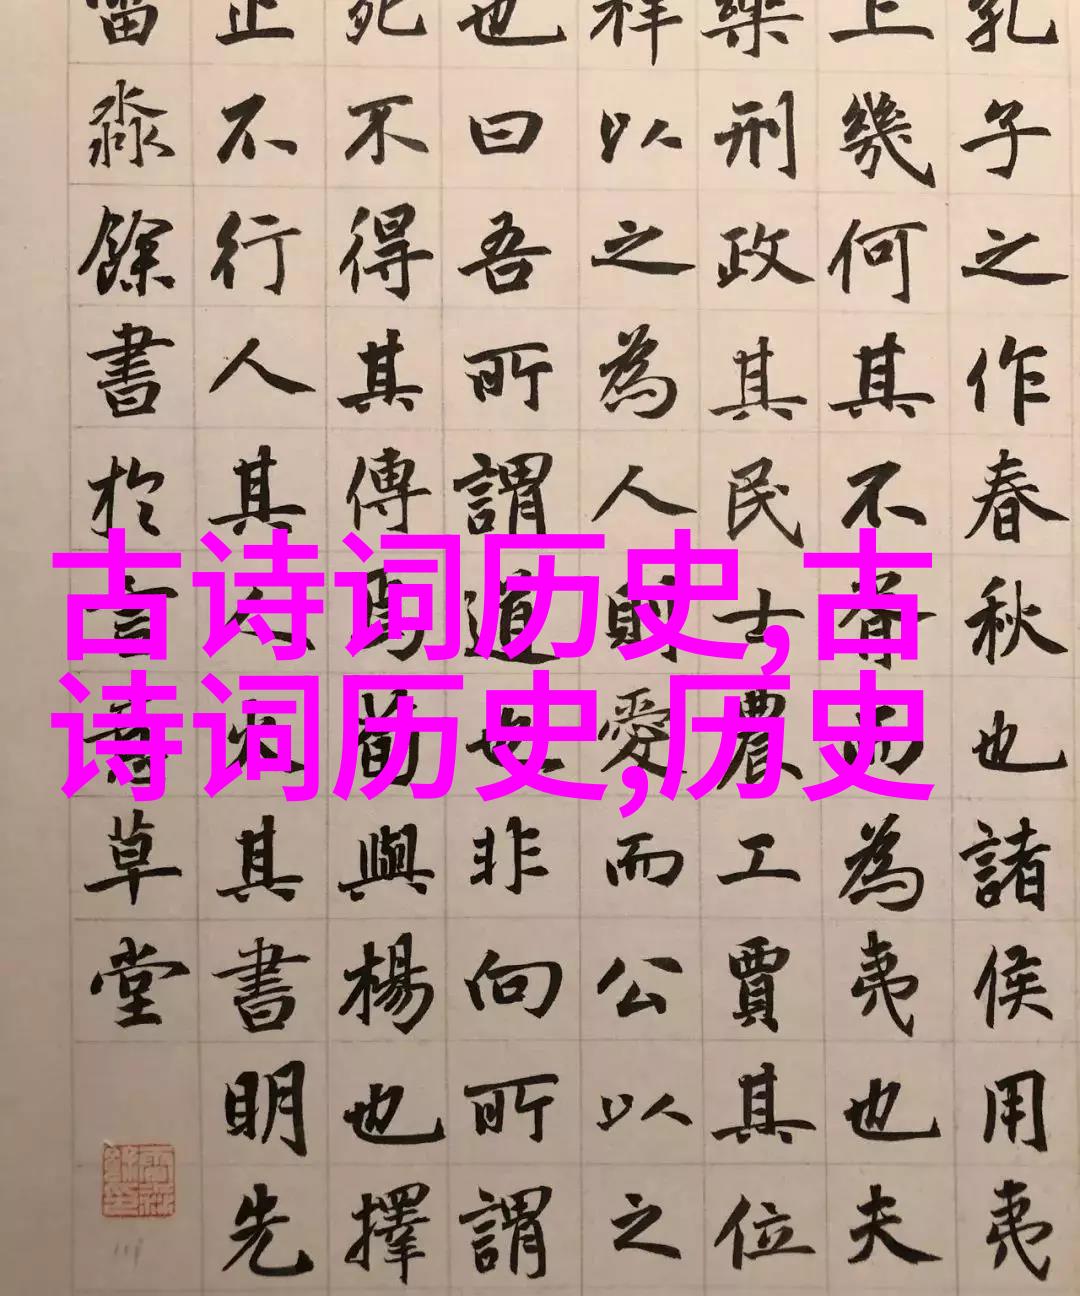 孔子之作春秋也諸侯用夷
上幾何其不胥而為夷也夫
樂刑政其民士農工賈其位
祥以之為人則愛而公以之
也曰吾所謂道也非向所謂
死不得其傳焉荀與楊也擇
止不行人其人火其書明先
淼餘書於草堂
古诗词历史,古
诗词历史,历史